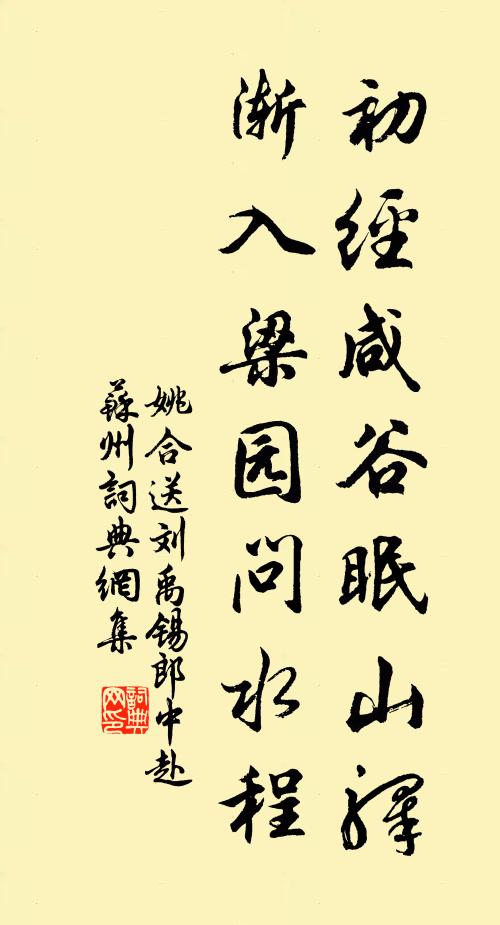 初經咸谷眠山驛
渐入梁园问水程
姚合送刘禹锡郎中赴
蘇州詞典網集
詞典网印